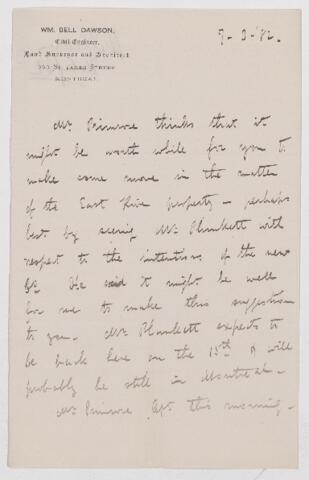 WM. BELL DAWSON,
Civil Engineer,
Land Surveyor and Architect
St. James Street
MONTREAL
7-3-'82.
Mr. Primrose thinks that it
might be worth while for you to
make some move in the matter
of the East River property - perhaps
best by seeing Mr. Plunkett with
respect to the intentions of the new
Co. He said it might be well
for me to make this suggestion
to you. Mr. Plunkett expects to
be back here on the 15th & will
probably be still in Montreal -
Mr. Primrose left this morning -